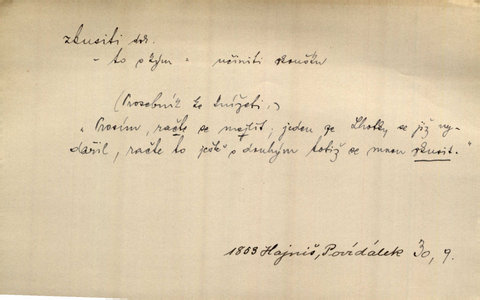 zkusiti dok.
- to s kým = učiniti zkoušku
(Prosebník ke knížeti.)
"Prosím, račte se mejlit, jeden ze Lhotky se již vy-
dařil, račte to ještě s druhým totiž se mnou zkusit."
1863 Hajniš, Povídálek 30, 9.